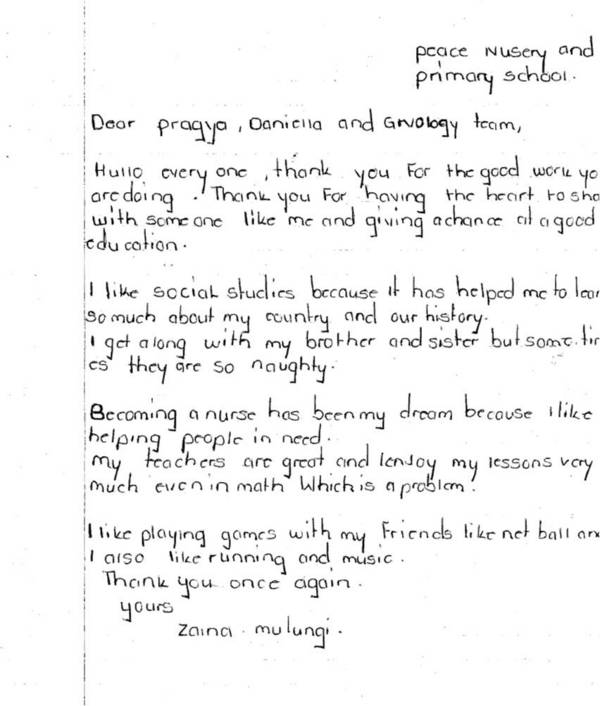 peace Nusery and
primary school.
Dear pragya, Daniella and Grvology team,
Hullo every one, thank you For the good work yo
are doing. Thank you For having the heart to sha
with some one like me and giving a chance at a good
education.
I like social studies because it has helped me to lear
so much about my country and our history.
I get along with my brother and sister but some.tim
es they are so naughty.
Becoming a nurse has been my dream because I like
helping people in need.
my teachers are great and I enjoy my lessons very
much even in math Which is a problem.
I like playing games with my Friends like net ball and
I also like running and music.
Thank you once again.
yours
Zaina. mulungi.